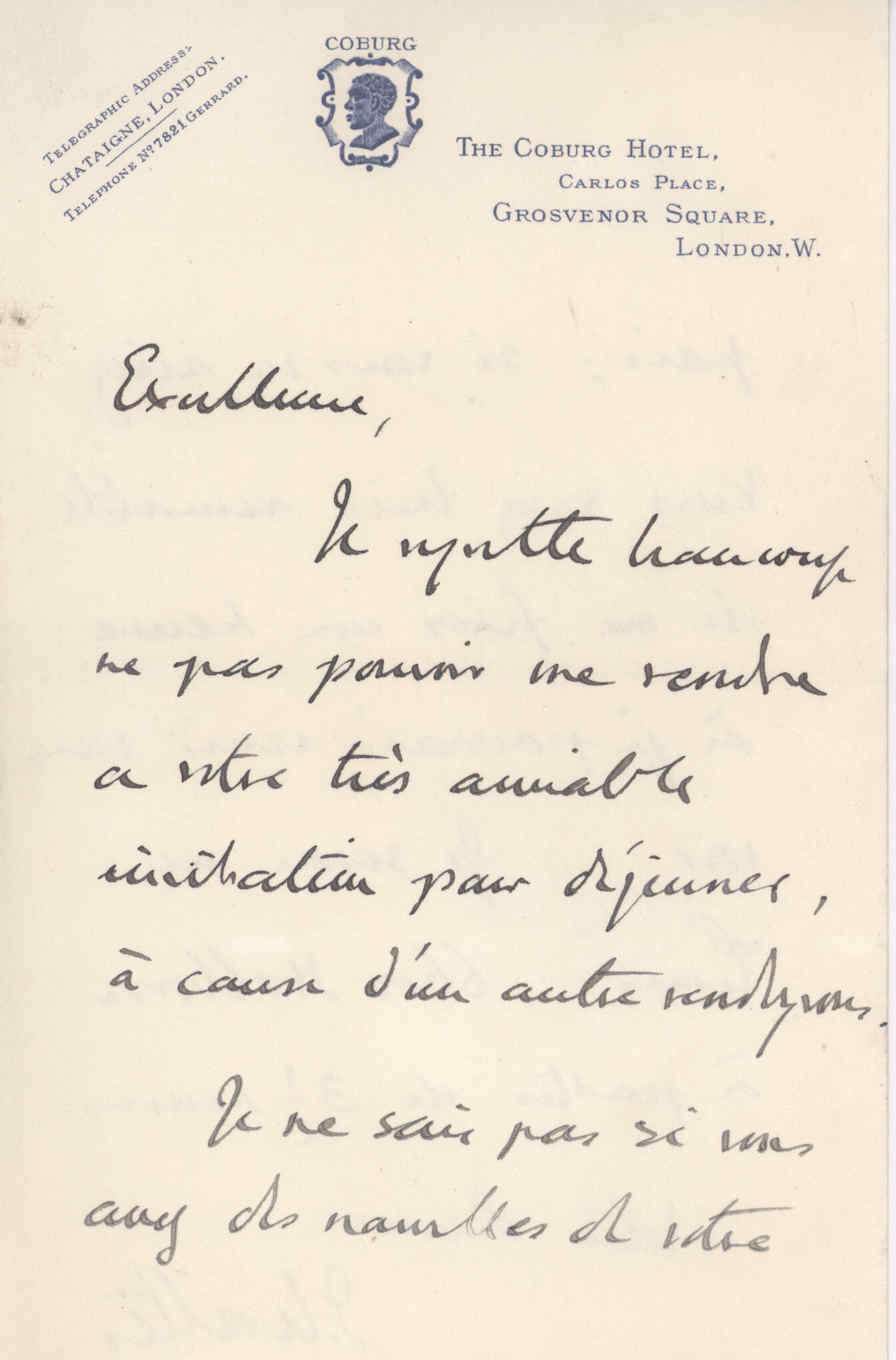 TELEGRAPHIC ADDRESS:
CHATAIGNE, LONDON.
TELEPHONE Nº 7821 GERRARD.
COBURG
THE COBURG HOTEL,
CARLOS PLACE,
GROSVENOR SQUARE,
LONDON.W.
Excellence,
Je regrette beaucoup
ne pas pouvoir me rendre
a votre très aimable
invitation pour déjeuner,
à cause d'un autre rendezvous.
Je ne sais pas si vous
avez des nouvelles de votre